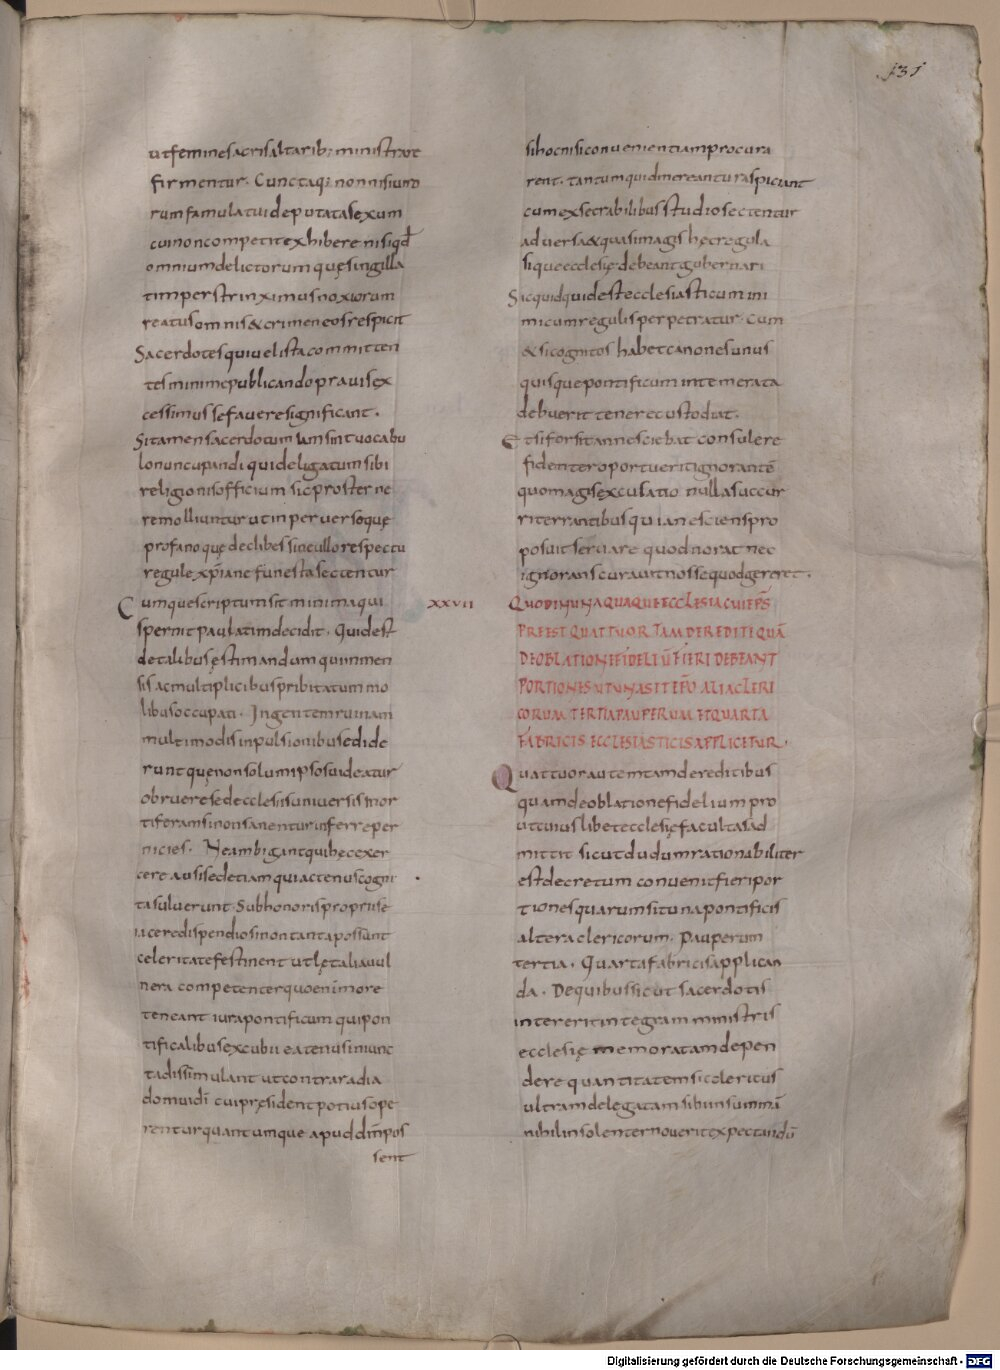 131
ut femine sacris altarib; ministrare
firmentur. Cunctaq; non nisi uiro
rum famulatui deputata sexum
cui non competit exhibere nisi qđ
omnium delictorum quę singilla
tim perstrinximus noxiorum
reatus omnis & crimen eos respicit
Sacerdotes qui uel ista committen
tes minime publicando prauis ex
cessimus se fauere significant.
Si tamen sacerdotum iam sint uocabu
lo nuncupandi qui deligatum sibi
religionis officium sic prosterne
re molliuntur ut in peruersoquę
profanoquę declibes sine ullo respectu
regule xp̄iane funesta sectentur
Cumque scriptum sit minima qui
spernit paulatim decidit. Quid est
de talibus ęstimandum qui inmen
sis ac multiplicibus pribitatum mo
libus occupati. Ingentem ruinam
multimodis inpulsionibus edide
runt quę non solum ipsos uideatur
obruere sed ecclesiis uniuersis mor
tiferam si non sanentur inferre per
nicies. Ne ambigant qui hęc exer
cere ausi sed etiam qui actenus cogni
ta siluerunt. Sub honoris proprii se
iacere dispendio si non tanta possunt
celeritate festinent ut lętalia uul
nera competenter quo enī more
teneant iura pontificum qui pon
tificalibus excubiis eatenus iniunc
ta dissimulant ut contraria do
mui dī cui pręsident potius ope
rentur quantumque apud dm̄ pos
sent
si hoc nisi conuenientiam procura
rent. tantum quid mereantur aspiciant
cum exsecrabilibus studio sectentur
aduersa & quasi magis hęc regula
sique ecclesię debeant gubernari
Sic quidquid est ecclesiasticum ini
micum regulis perpetratur. Cum
& si cognitos habet canones unus
quisque pontificum intemerata
debuerit tenere custodiat.
Et si forsitan nesciebat consulere
fidenter oportuerit ignorantē
quo magis exculatio nulla succur
rit errantibus quia nesciens pro
posuit seruare quod norat nec
ignorans curauit nosse quod gereret.
XXVII QUOD IN UNAQUAQUE ECCLESIA CUI EP̄S
PREEST QUATTUOR TAM DE REDITI QUĀ
DE OBLATIONE FIDELIŪ FIERI DEBEANT
PORTIONES UT UNA SIT EP̄O ALIA CLERI
CORUM TERTIA PAUPERUM ET QUARTA
FABRICIS ECCLESIASTICIS APPLICETUR.
Quattuor autem tam de reditibus
quam de oblatione fidelium pro
ut cuiuslibet ecclesię facultas ad
mittit sicut dudum rationabiliter
est decretum conuenit fieri por
tiones quarum sit una pontificis
altera clericorum. Pauperum
tertia. Quarta fabricis applican
da. De quibus sicut sacerdotis
intererit integram ministris
ecclesię memoratam depen
dere quantitatem sic clericus
ultra mdelegatam sibi insummā
nihil insolenter nouerit expectandū
Digitalisierung gefördert durch die Deutsche Forschungsgemeinschaft - DFG